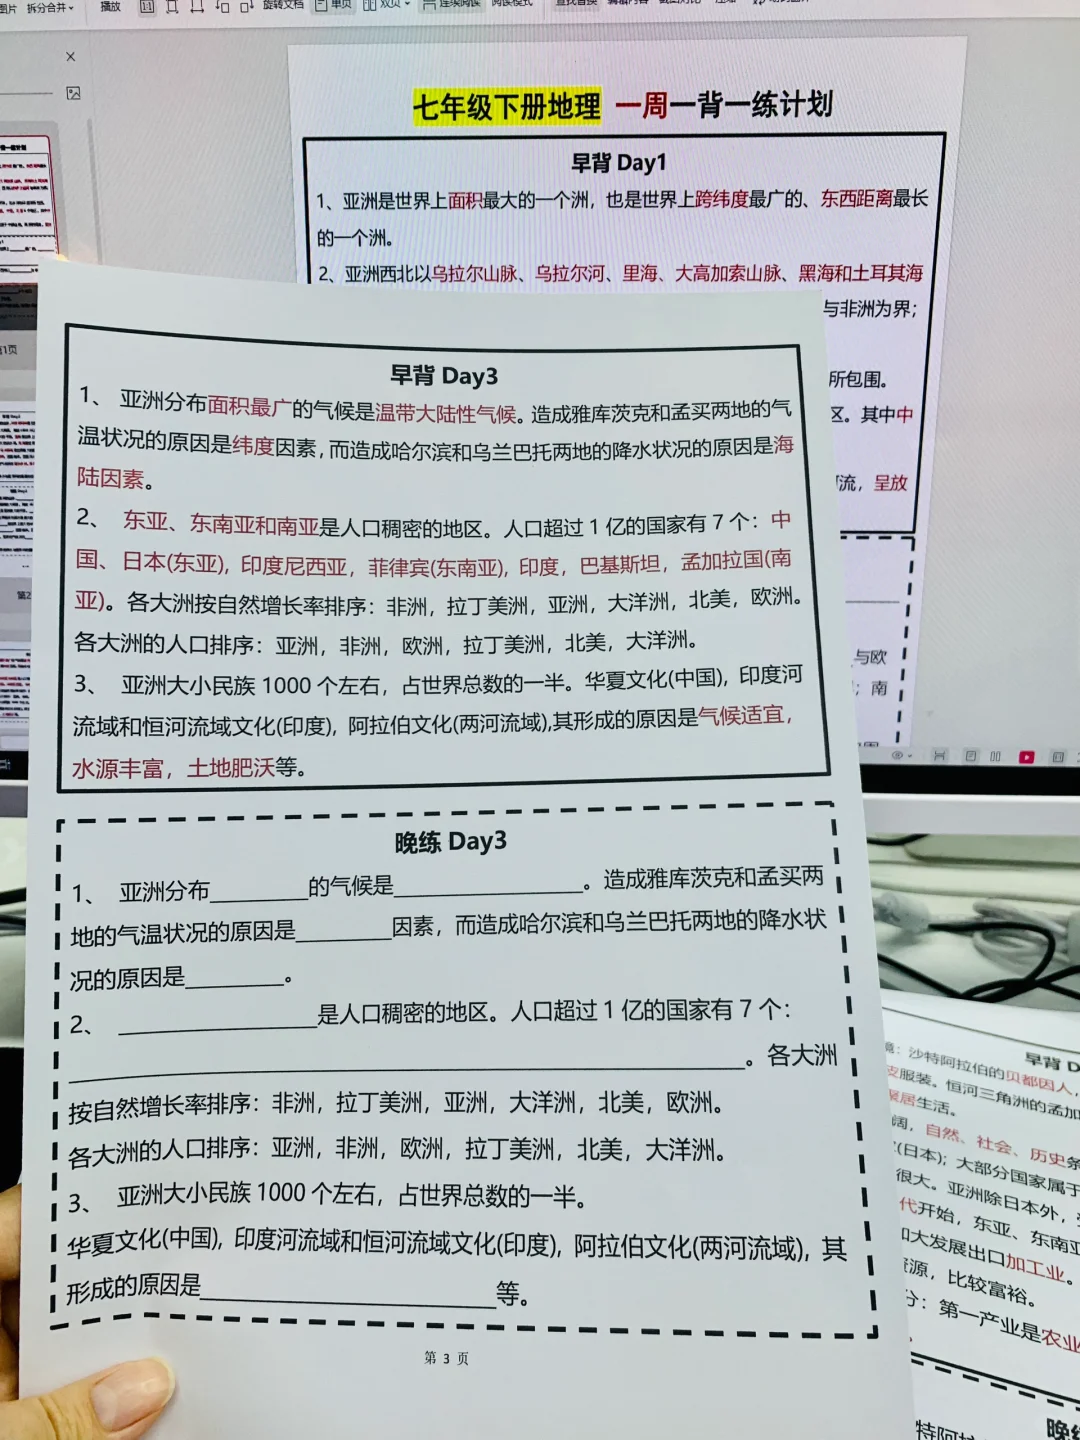 拆分合并
播放
旋转文档
单页
双页
连续阅读
七年级下册地理 一周一背一练计划
早背 Day1
1、亚洲是世界上面积最大的一个洲，也是世界上跨纬度最广的、东西距离最长
的一个洲。
2、亚洲西北以乌拉尔山脉、乌拉尔河、里海、大高加索山脉、黑海和土耳其海
与非洲为界；
所包围。
区。其中中
流，呈放
与欧
；南
早背 Day3
1、 亚洲分布面积最广的气候是温带大陆性气候。造成雅库茨克和孟买两地的气
温状况的原因是纬度因素，而造成哈尔滨和乌兰巴托两地的降水状况的原因是海
陆因素。
2、 东亚、东南亚和南亚是人口稠密的地区。人口超过 1 亿的国家有 7 个：中
国、日本(东亚)，印度尼西亚，菲律宾(东南亚)，印度，巴基斯坦，孟加拉国(南
亚)。各大洲按自然增长率排序：非洲，拉丁美洲，亚洲，大洋洲，北美，欧洲。
各大洲的人口排序：亚洲，非洲，欧洲，拉丁美洲，北美，大洋洲。
3、 亚洲大小民族 1000 个左右，占世界总数的一半。华夏文化(中国)，印度河
流域和恒河流域文化(印度)，阿拉伯文化(两河流域),其形成的原因是气候适宜，
水源丰富，土地肥沃等。
晚练 Day3
1、 亚洲分布________的气候是________________。造成雅库茨克和孟买两
地的气温状况的原因是________因素，而造成哈尔滨和乌兰巴托两地的降水状
况的原因是________。
2、 ________________是人口稠密的地区。人口超过 1 亿的国家有 7 个：
________________________________________________________。各大洲
按自然增长率排序：非洲，拉丁美洲，亚洲，大洋洲，北美，欧洲。
各大洲的人口排序：亚洲，非洲，欧洲，拉丁美洲，北美，大洋洲。
3、 亚洲大小民族 1000 个左右，占世界总数的一半。
华夏文化(中国)，印度河流域和恒河流域文化(印度)，阿拉伯文化(两河流域)，其
形成的原因是________________________等。
第 3 页
早背 D
：沙特阿拉伯的贝都因人，
服装。恒河三角洲的孟加
居生活。
阔，自然、社会、历史条
(日本)；大部分国家属于
很大。亚洲除日本外，
代开始，东亚、东南亚
大发展出口加工业。
资源，比较富裕。
分：第一产业是农业
晚练
特阿拉